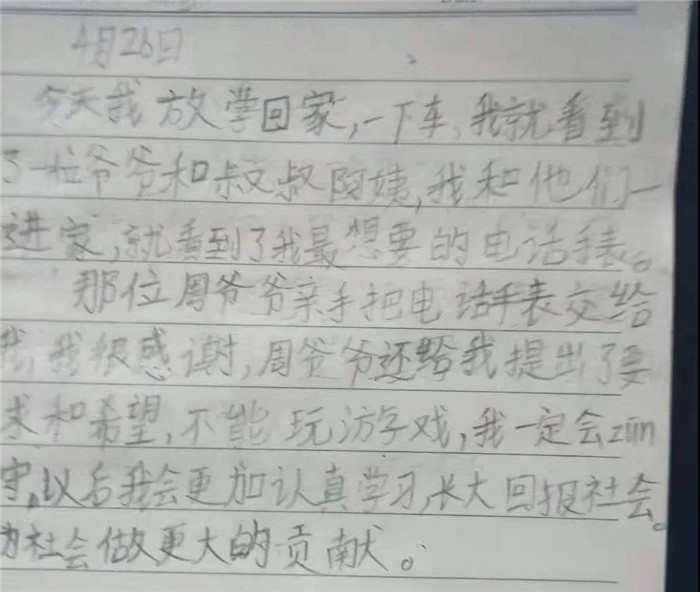 4月26日
今天我放学回家,一下车,我就看到
了一位爷爷和叔叔阿姨,我和他们一
进家,就看到了我最想要的电话手表。
那位周爷爷亲手把电话手表交给
我,我很感谢,周爷爷还给我提出了要
求和希望,不能玩游字戏,我一定会zūn
守,以后我会更加认真学习,长大回报社会。
为社会做更大的贡献。